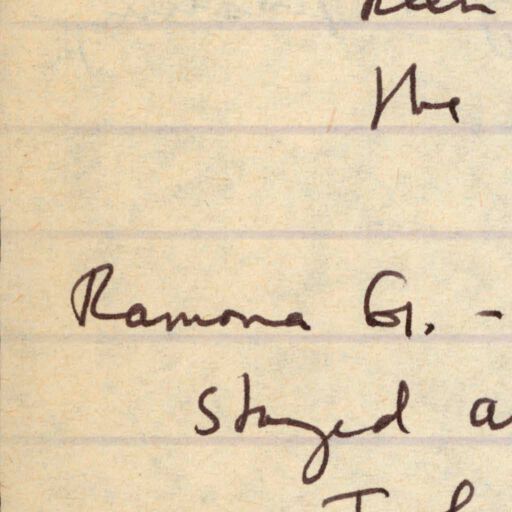 the
Ramona G. -
Stayed a